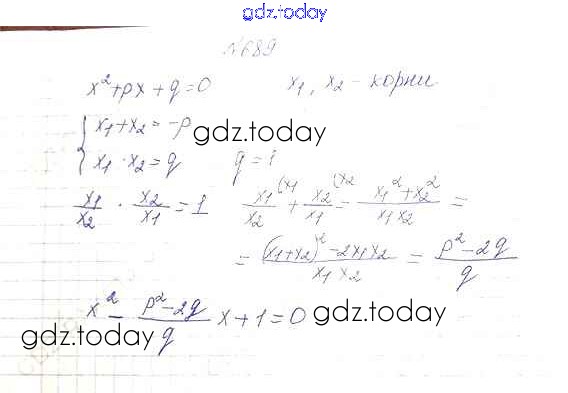 gdz.today
№689
x²+px+q=0 x₁, x₂ - корни
{ x₁+x₂=-p gdz.today
x₁·x₂=q q=1
x₁/x₂ · x₂/x₁ = 1 x₁/x₂ (x₁ + x₂/x₁ (x₂ = (x₁²+x₂²)/(x₁x₂) =
= ((x₁+x₂)²-2x₁x₂)/(x₁x₂) = (p²-2q)/q
x² - (p²-2q)/q x+1=0 gdz.today
gdz.today